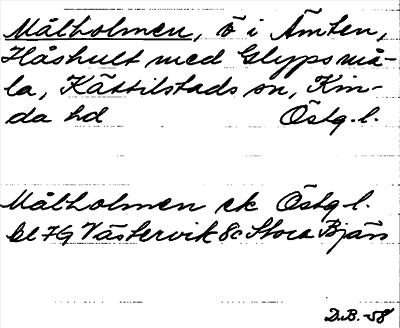 Målholmen, ö i Ämten,
Håshult med Glypsmå-
la, Kättilstads sn, Kin-
da hd Östg. l.
Målholmen ek Östg l.
bl 7G Västervik 8c Stora Bjän
D.B. -58